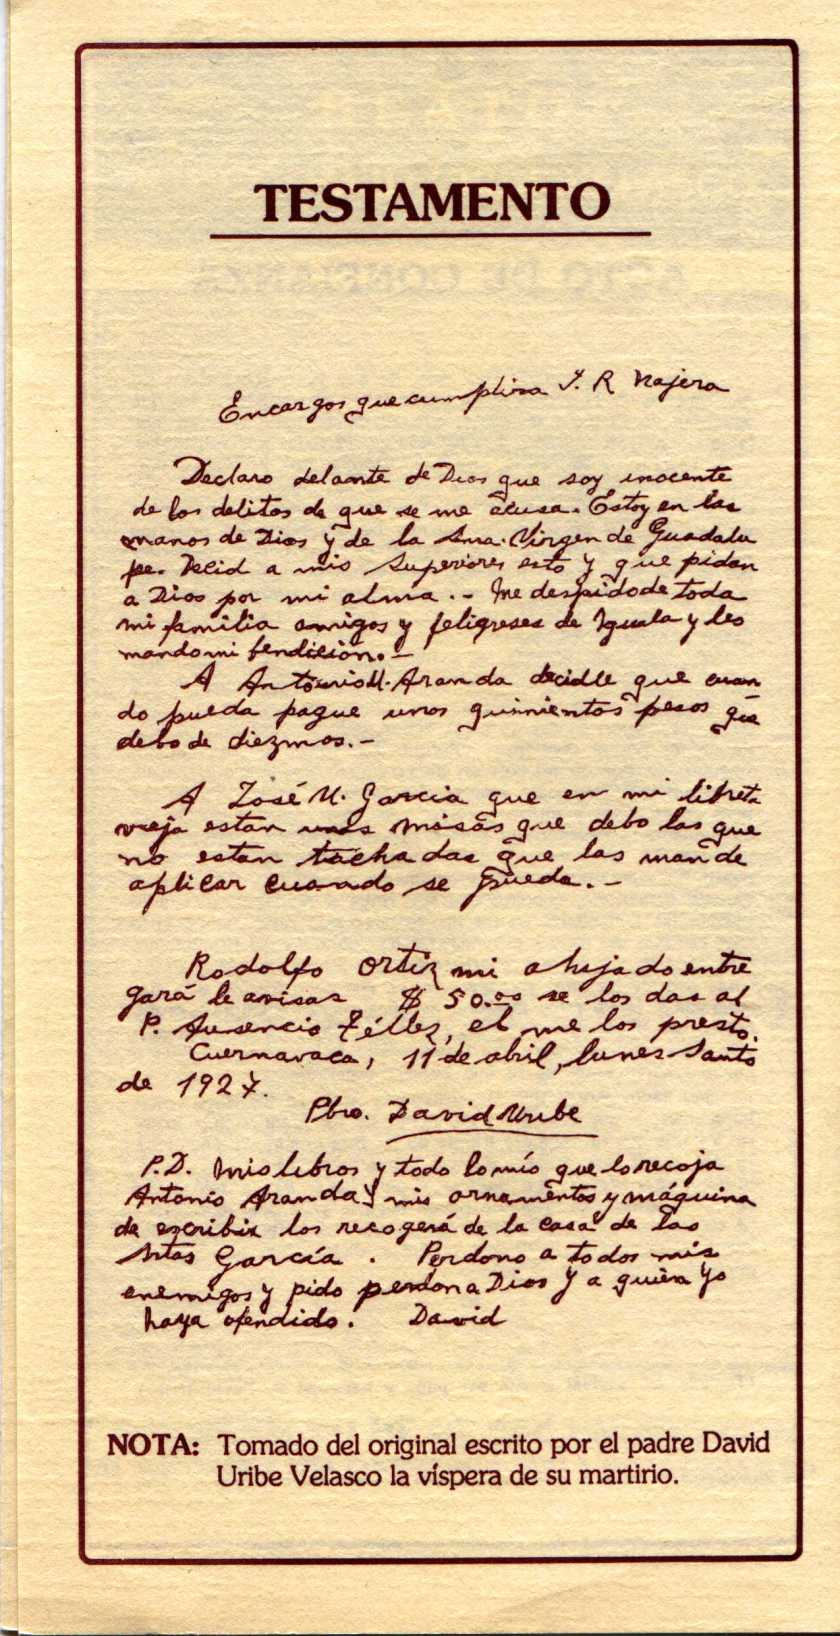 TESTAMENTO
Encargos que cumplira J. R Najera
Declaro delante de Dios que soy inocente
de los delitos de que se me acusa. Estoy en las
manos de Dios y de la Sma. Virgen de Guadalu
pe. Decid a mis Superiores esto y que pidan
a Dios por mi alma. - Me despido de toda
mi familia amigos y feligreses de Iguala y les
mando mi bendición. -
A Antonio M. Aranda decidle que cuan
do pueda pague unos quinientos pesos que
debo de diezmos. -
A José U. García que en mi libreta
vieja estan unas misas que debo las que
no estan tachadas que las mande
aplicar cuando se pueda. -
Rodolfo Ortiz mi ahijado entre
gará le avisas $ 50.00 se los das al
P. Ausencio Téllez, el me los presto.
Cuernavaca, 11 de abril, lunes Santo
de 1927.
Pbro. David Uribe
P.D. Mis libros y todo lo mío que lo recoja
Antonio Aranda y mis ornamentos y máquina
de escribir los recogerá de la casa de las
Sritas García. Perdono a todos mis
enemigos y pido perdon a Dios y a quien yo
haya ofendido. David
NOTA: Tomado del original escrito por el padre David
Uribe Velasco la víspera de su martirio.